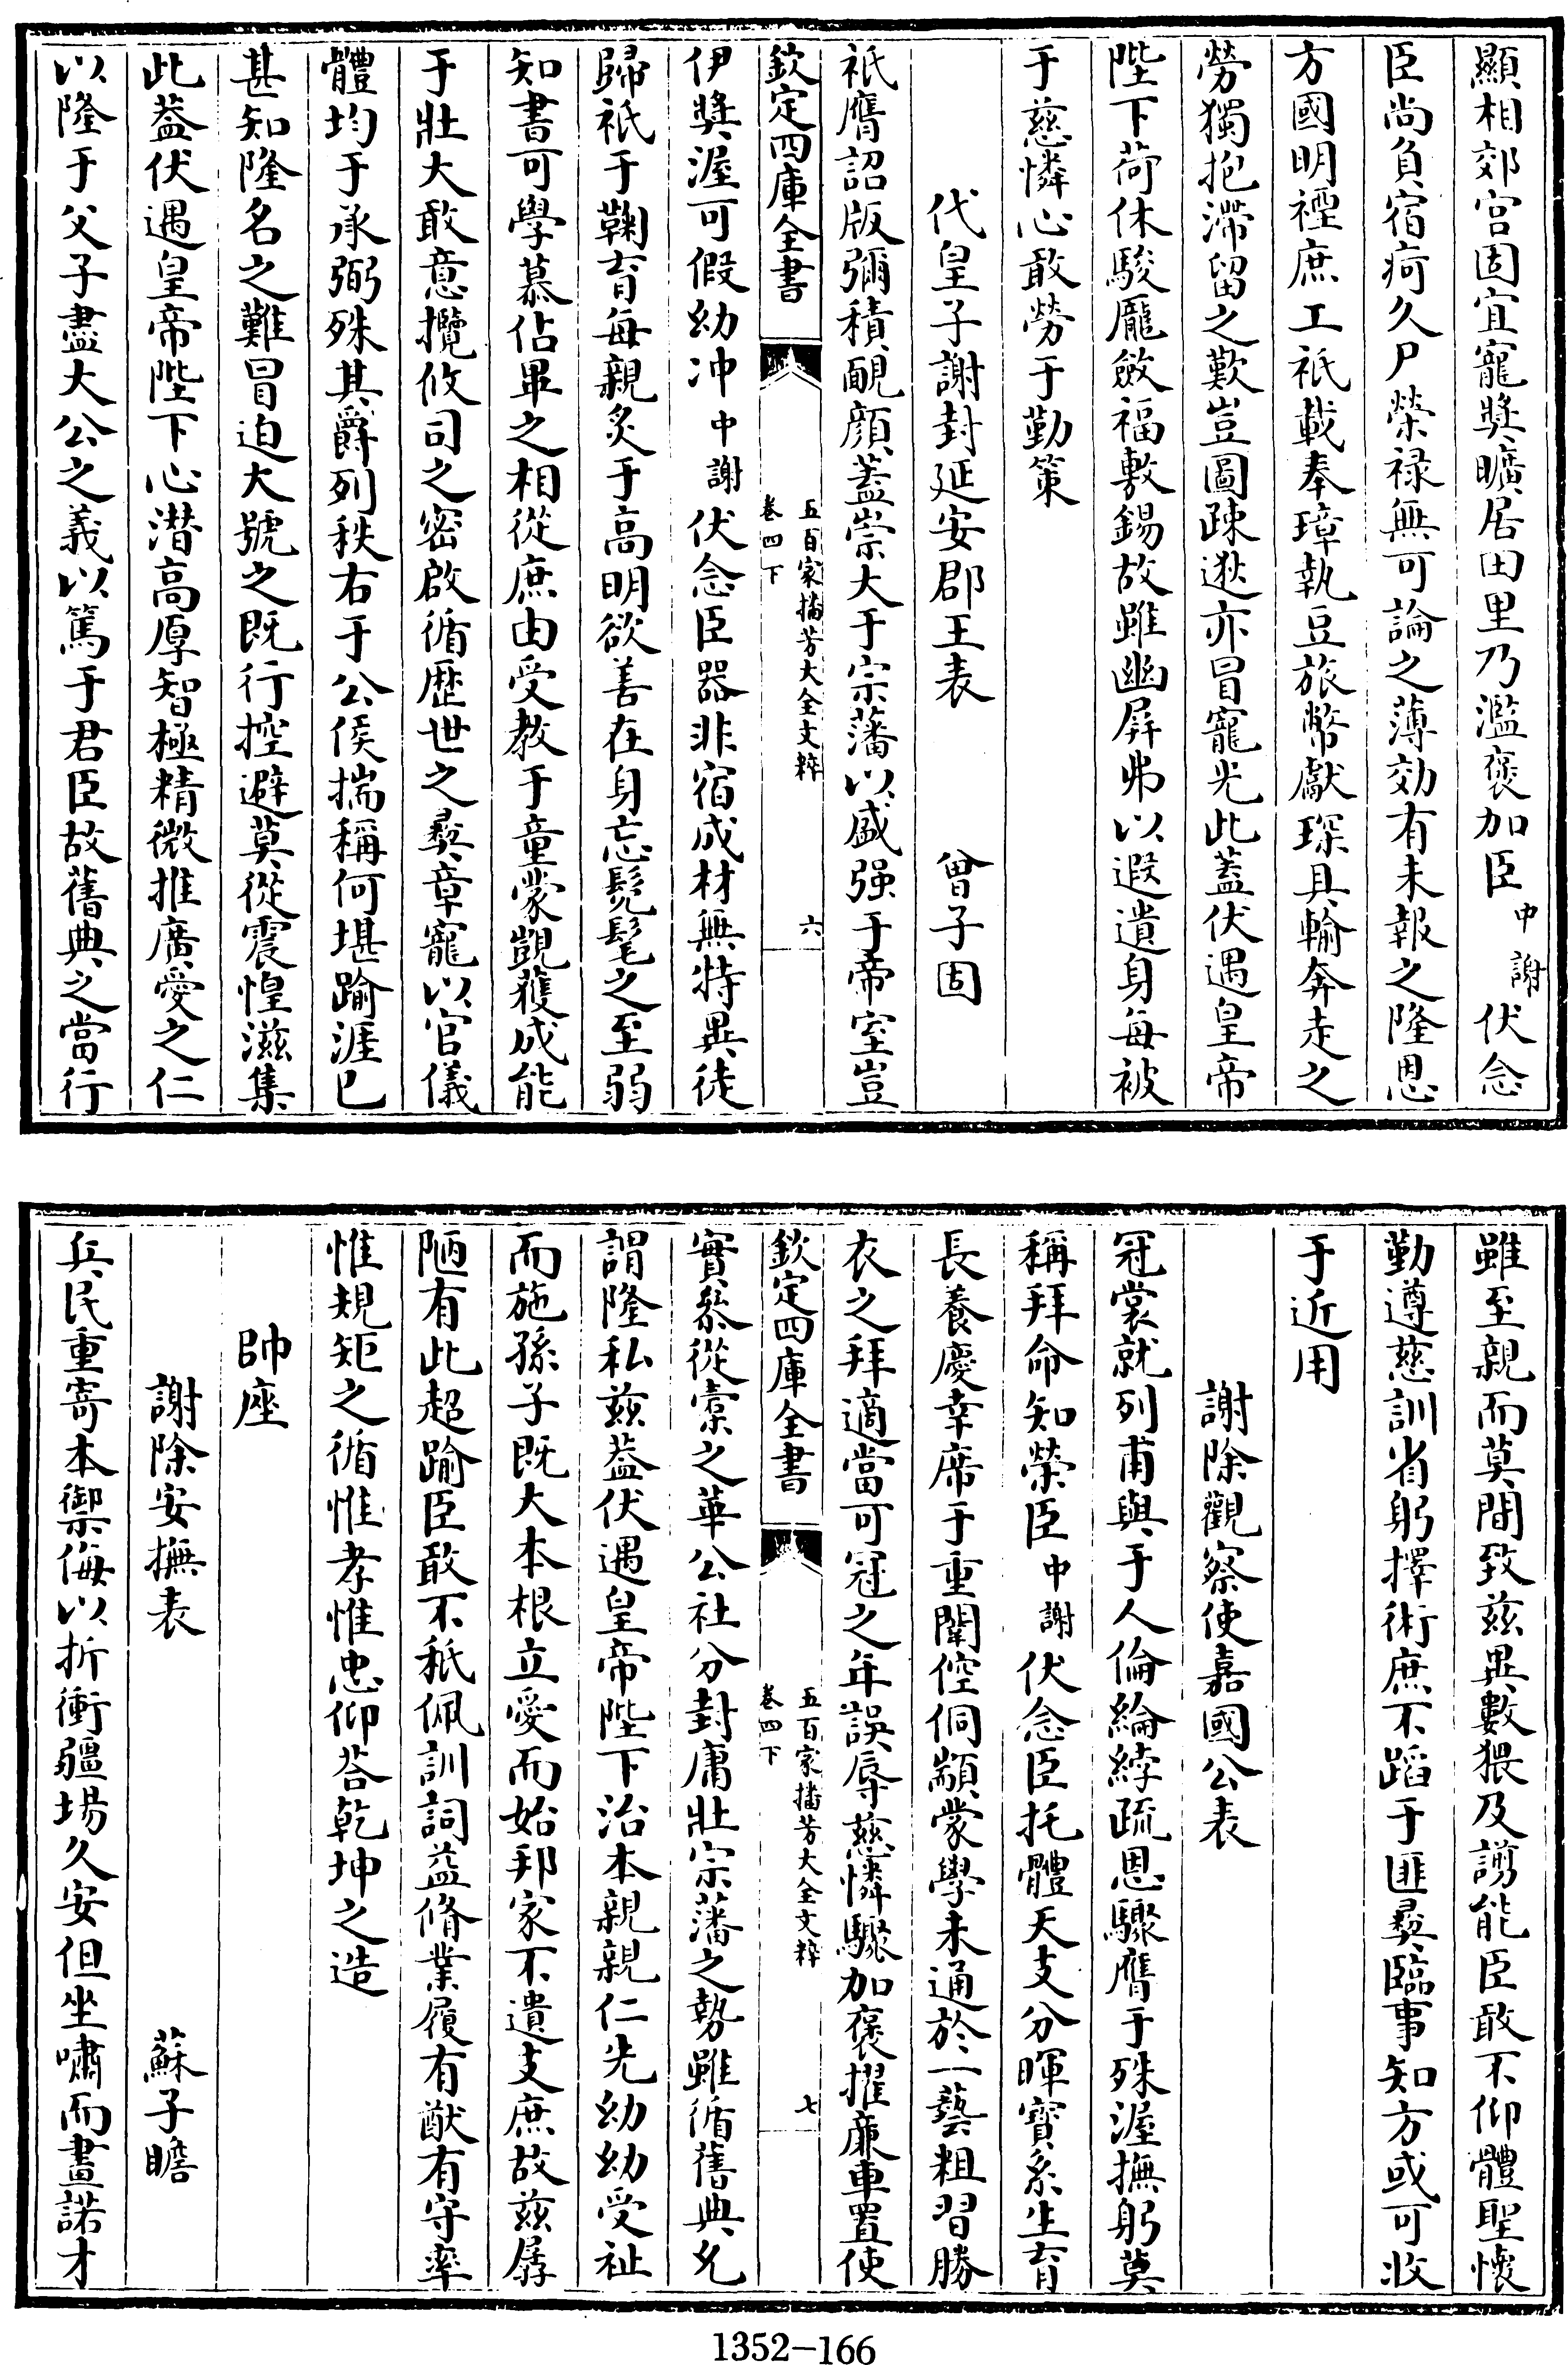 顯相郊宫固宜寵奬曠居田里乃濫褒加臣中謝伏念
臣尚負宿痾久尸榮禄無可論之薄効有未報之隆恩
方國明禋庶工祇載奉璋執豆旅幣獻琛具輸奔走之
勞獨抱滯留之歎豈圖疎逖亦冒寵光此蓋伏遇皇帝
陛下荷休駿厖斂福敷錫故雖幽屏弗以遐遺身每被
于慈憐心敢勞于勤策
代皇子謝封延安郡王表 曾子固
祇膺詔版彌積靦顔蓋崇大于宗藩以盛强于帝室豈
欽定四庫全書 五百家播芳大全文粹 卷四下 六
伊奬渥可假幼冲中謝伏念臣器非宿成材無特異徒
歸祇于鞠育每親炙于高明欲善在身忘髧髦之至弱
知書可學慕佔畢之相從庶由受教于童蒙覬穫成能
于壯大敢意攬攸司之密啟循歴世之彛章寵以官儀
體均于承弼殊其爵列秩右于公侯揣稱何堪踰涯已
甚知隆名之難冒迫大號之既行控避莫從震惶滋集
此葢伏遇皇帝陛下心潜高厚智極精微推廣愛之仁
以隆于父子盡大公之義以篤于君臣故舊典之當行
雖至親而莫間致兹異數猥及謭能臣敢不仰體聖懷
勤遵慈訓省躬擇術庶不蹈于匪彛臨事知方或可收
于近用
謝除觀察使嘉國公表
冠裳就列甫與于人倫綸綍疏恩驟膺于殊渥撫躬莫
稱拜命知榮臣中謝伏念臣托體天支分暉寶系生育
長養慶幸席于重闈倥侗顓蒙學未通於一藝粗習勝
衣之拜適當可冠之年誤辱慈憐驟加褒擢廉車置使
欽定四庫全書 五百家播芳大全文粹 卷四下 七
實叅從橐之華公社分封庸壯宗藩之勢雖循舊典允
謂隆私兹葢伏遇皇帝陛下治本親親仁先幼幼受祉
而施孫子既大本根立愛而始邦家不遺支庶故兹孱
陋有此超踰臣敢不秪佩訓詞益脩業履有猷有守率
惟規矩之循惟孝惟忠仰荅乾坤之造
帥座
謝除安撫表 蘇子瞻
兵民重寄本禦侮以折衝疆埸久安但坐嘯而畫諾才
1352-166